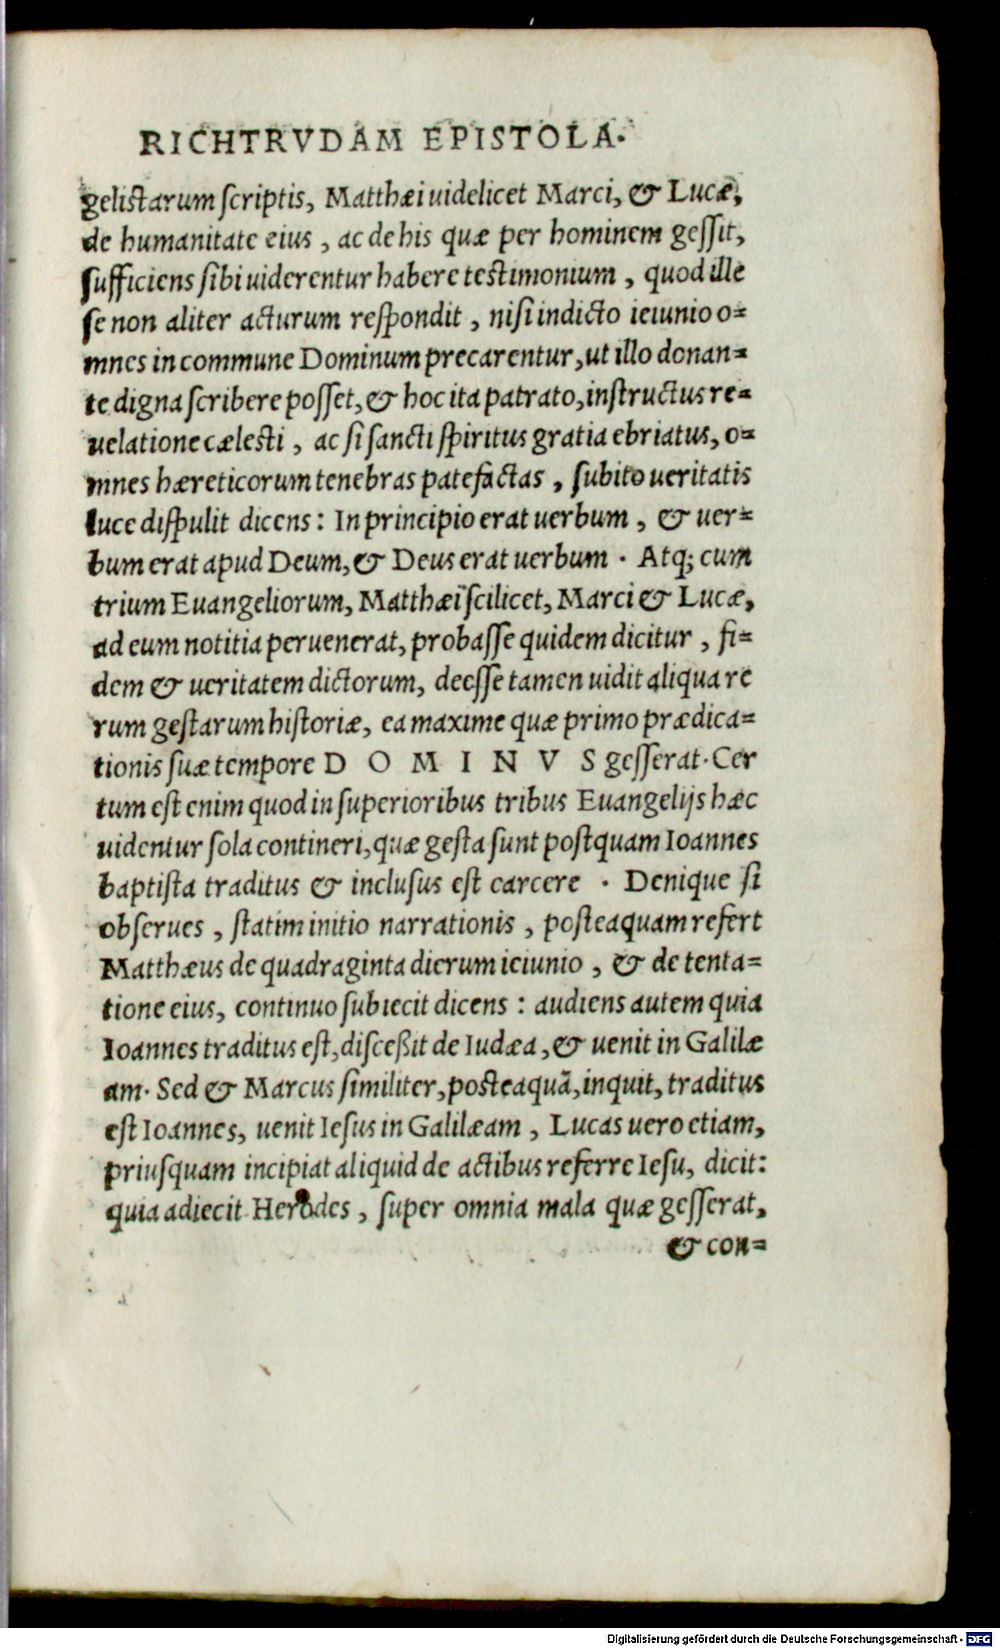 RICHTRVDAM EPISTOLA.
gelistarum scriptis, Matthæi uidelicet Marci, & Lucæ,
de humanitate eius, ac de his quæ per hominem gessit,
sufficiens sibi uiderentur habere testimonium, quod ille
se non aliter acturum respondit, nisi indicto ieiunio o=
mnes in commune Dominum precarentur, ut illo donan=
te digna scribere posset, & hoc ita patrato, instructus re=
uelatione cælesti, ac si sancti spiritus gratia ebriatus, o=
mnes hæreticorum tenebras patefactas, subito ueritatis
luce dispulit dicens: In principio erat uerbum, & uer=
bum erat apud Deum, & Deus erat uerbum. Atq; cum
trium Euangeliorum, Matthæi scilicet, Marci & Lucæ,
ad eum notitia peruenerat, probasse quidem dicitur, fi=
dem & ueritatem dictorum, deesse tamen uidit aliqua re
rum gestarum historiæ, ea maxime quæ primo prædica=
tionis suæ tempore D O M I N V S gesserat. Cer
tum est enim quod in superioribus tribus Euangelijs hæc
uidentur sola contineri, quæ gesta sunt postquam Ioannes
baptista traditus & inclusus est carcere. Denique si
obserues, statim initio narrationis, posteaquam refert
Matthæus de quadraginta dierum ieiunio, & de tenta=
tione eius, continuo subiecit dicens: audiens autem quia
Ioannes traditus est, disceßit de Iudæa, & uenit in Galilæ
am. Sed & Marcus similiter, posteaquã, inquit, traditus
est Ioannes, uenit Iesus in Galilæam, Lucas uero etiam,
priusquam incipiat aliquid de actibus referre Iesu, dicit:
quia adiecit Herodes, super omnia mala quæ gesserat,
& con=
Digitalisierung gefördert durch die Deutsche Forschungsgemeinschaft - DFG